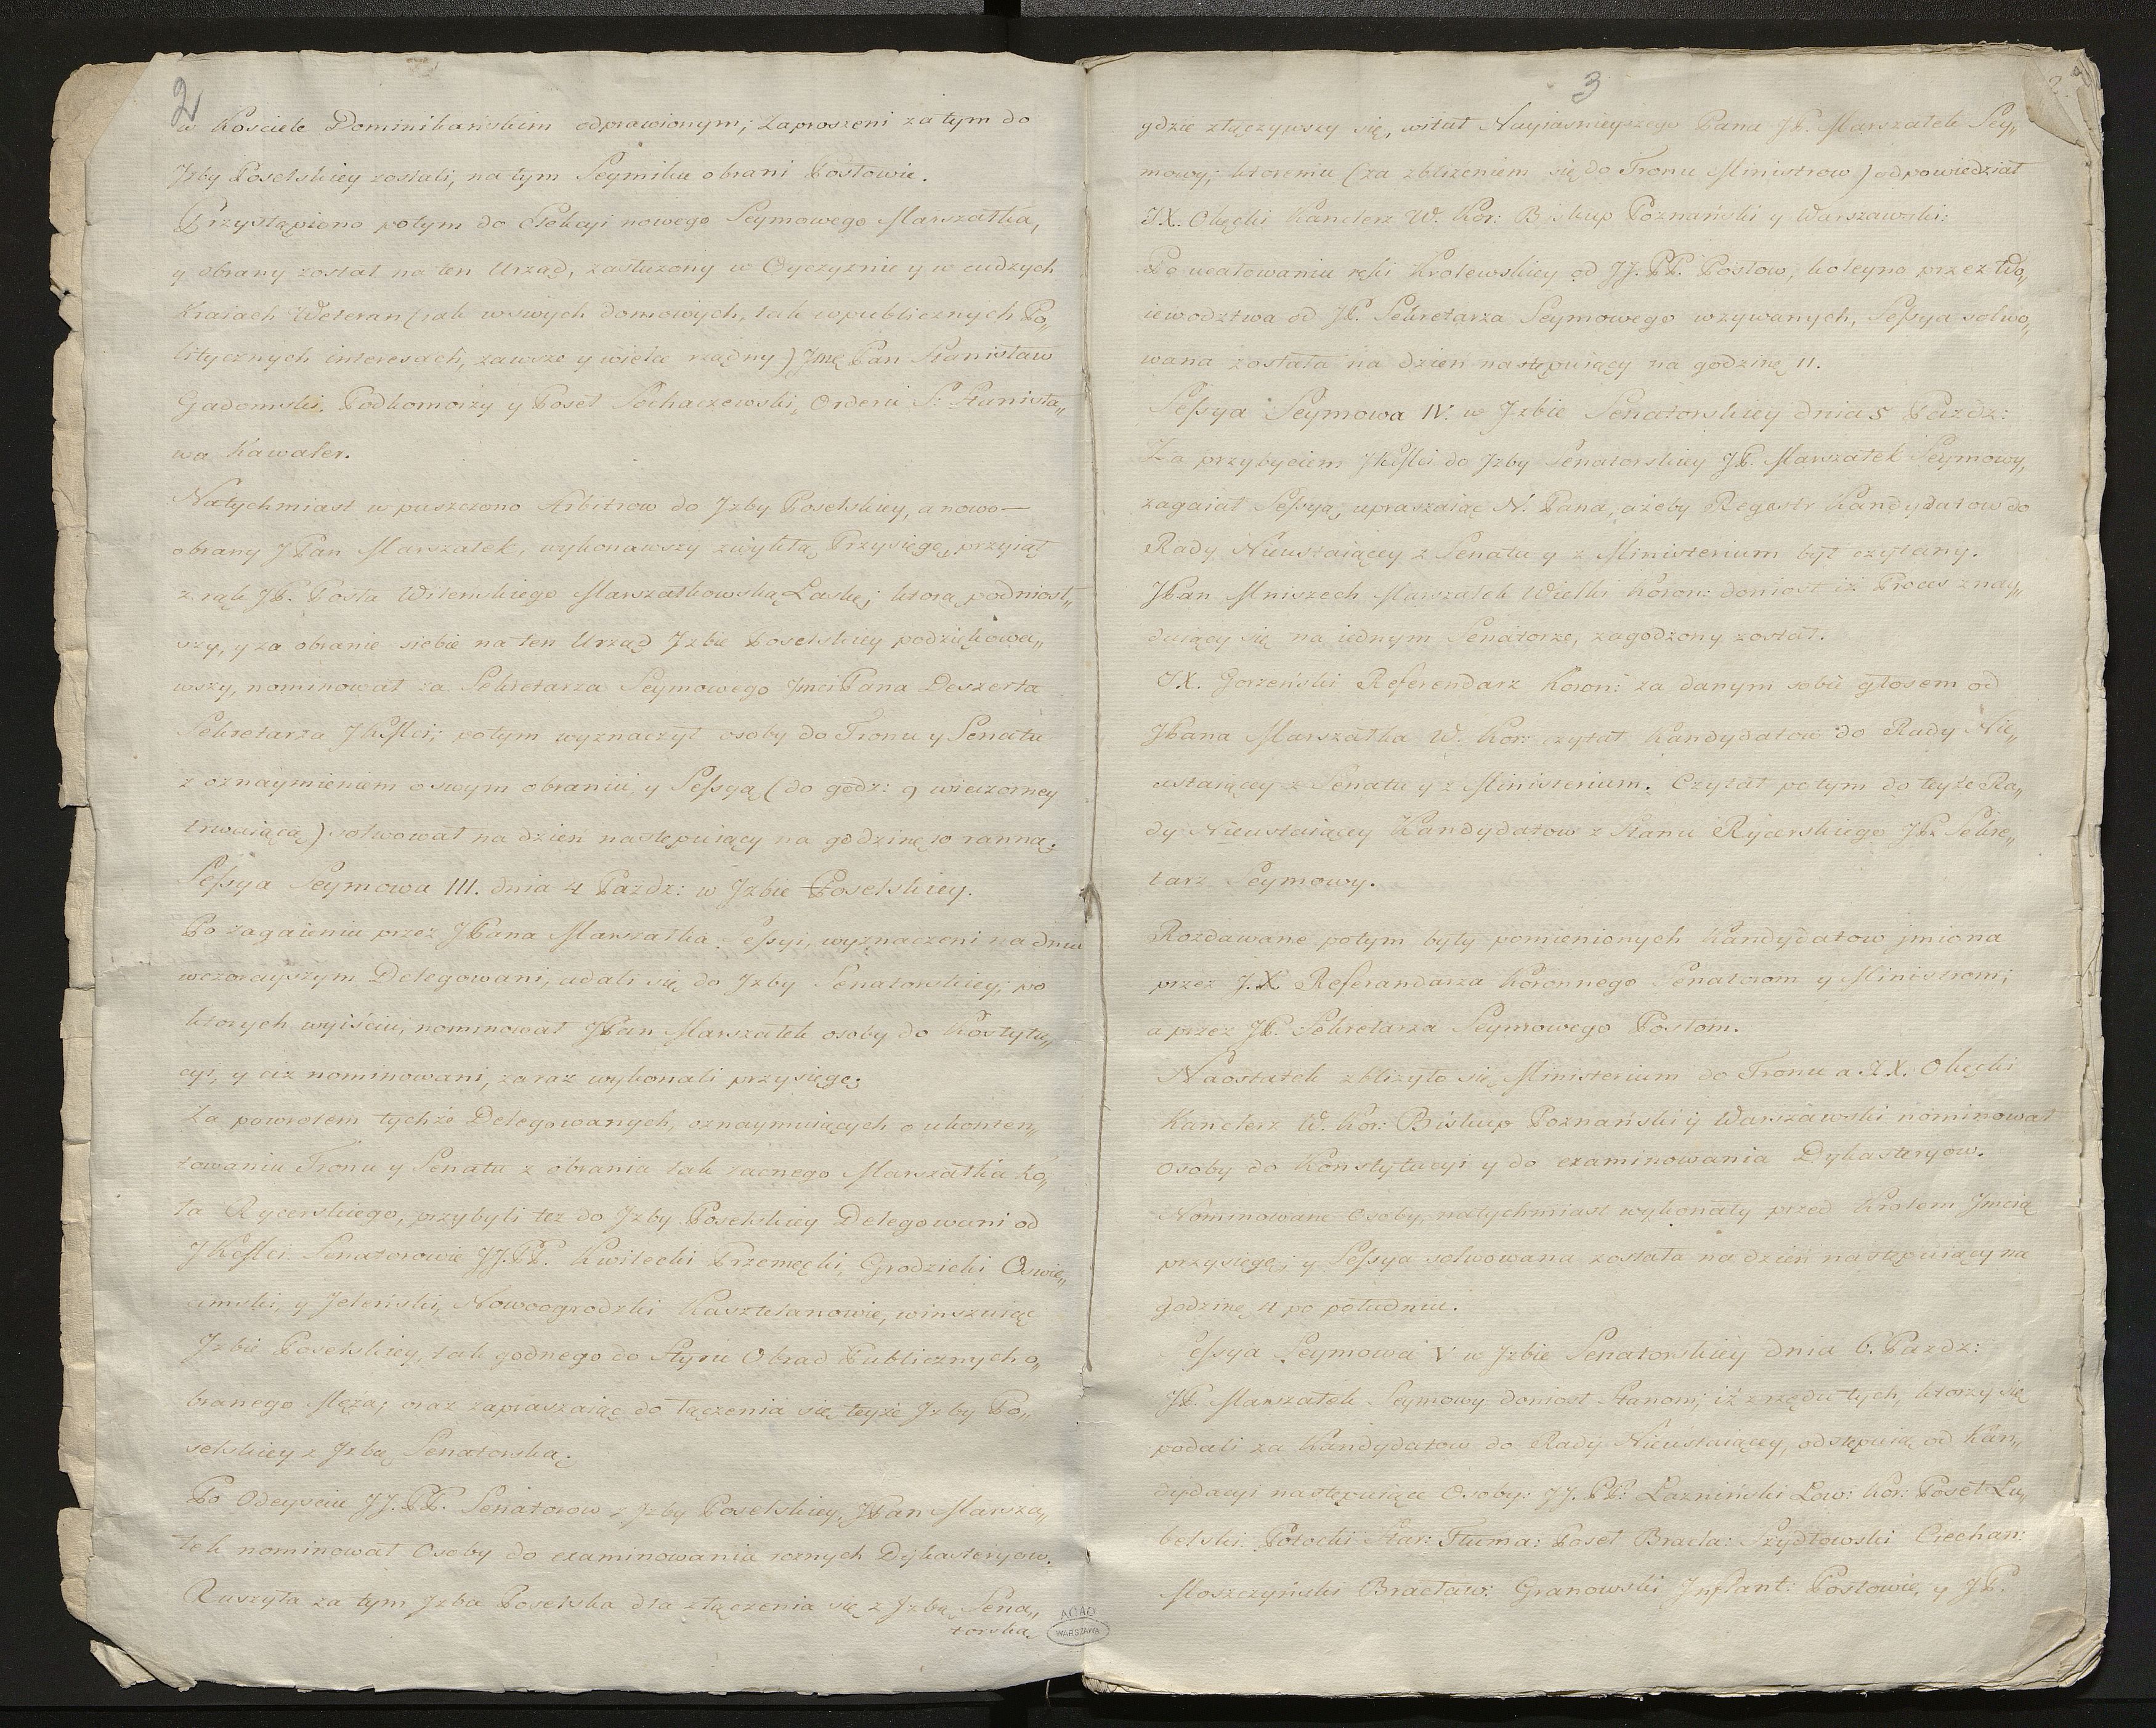 2
w Kosciele Dominikańskim odprawionym; Zaproszeni zatym do
Jzby Poselskiey zostali, na tym Seymiku obrani Posłowie.
Przystąpiono potym do Elekcyi nowego Seymowego Marszałka,
y obrany został na ten Urząd, zasłużony w Oyczyznie y w cudzych
Kraiach Weteran (iak w swych domowych, tak w publicznych Po„
litycznych interesach, zawsze y wiele rządny) Jmę Pan Stanisław
Gadomski, Podkomorzy y Poseł Sochaczewski, Orderu S: Stanisła„
wa Kawaler.
Natychmiast wpuszczono Arbitrow do Jzby Poselskiey, a nowo—
obrany JPan Marszałek, wykonawszy zwykłą Przysięgę, przyiął
z rąk JP. Posła Wileńskiego Marszałkowską Laskę; ktorą podniosł„
szy, y za obranie siebie na ten Urząd Jzbie Poselskiey podziękowa„
wszy, nominował za Sekretarza Seymowego Jmci Pana Deszerta
Sekretarza JKMci; potym wyznaczył osoby do Tronu y Senatu
z oznaymieniem o swym obraniu, y Sessyą (do godz: 9 wieczorney
trwaiącą) solwował na dzien następuiący na godzinę 10 ranną.
Sessya Seymowa III. dnia 4 Pazdz: w Jzbie Poselskiey.
Po zagaieniu przez JPana Marszałka Sessyi, wyznaczeni na dniu
wczorayszym Delegowani, udali się do Jzby Senatorskiey; po
ktorych wyiściu, nominował JPan Marszałek osoby do Kostytu„
cyi, y ciż nominowani, zaraz wykonali przysięgę.
Za powrotem tychże Delegowanych, oznaymuiących o ukonten„
towaniu Tronu y Senatu z obrania tak zacnego Marszałka Ko„
ła Rycerskiego, przybyli też do Jzby Poselskiey Delegowani od
JKMci. Senatorowie JJ. PP. Kwilecki Przemęcki, Grodzicki Oswie„
cimski, y Jeleński, Nowogrodzki Kasztelanowie, winszuiąc
Jzbie Poselskiey, tak godnego do Styru Obrad Publicznych o„
branego Męża; oraz zapraszaiąc do łączenia się teyże Jzby Po„
selskiey z Jzbą Senatorską.
Po Odeysciu JJ. PP. Senatorow z Jzby Poselskiey, JPan Marsza„
łek nominował Osoby do examinowania roznych Dykasteryow.
Ruszyła za tym Jzba Poselska dla złączenia się z Jzbą Sena„
torską
3
gdzie złączywszy się, witał Nayiasnieyszego Pana JP. Marszałek Sey„
mowy; ktoremu (za zbliżeniem się do Tronu Ministrow) odpowiedział
JX. Okęcki Kanclerz W. Kor: Biskup Poznański y Warszawski:
Po ucałowaniu ręki Krolewskiey od JJ. PP. Posłow, koleyno przez Wo„
iewodztwa od JP. Sekretarza Seymowego wzywanych, Sessya solwo„
wana została na dzień następuiący na godzinę 11.
Sessya Seymowa IV. w Jzbie Senatorskiey dnia 5 Pazdz:
Za przybyciem JKMci do Jzby Senatorskiey JP. Marszałek Seymowy,
zagaiał Sessyą; upraszaiąc N. Pana, ażeby Regestr Kandydatow do
Rady Nieustaiącey z Senatu y z Ministerium był czytany.
JPan Mniszech Marszałek Wielki Koron: doniosł iż Proces znay„
duiący się na iednym Senatorze, zagodzony został.
JX. Gorzeński Referendarz Koron: za danym sobie głosem od
JPana Marszałka W. Kor: czytał Kandydatow do Rady Nie„
ustaiącey z Senatu y z Ministerium. Czytał potym do teyże Ra„
dy Nieustaiącey Kandydatow z Stanu Rycerskiego JP. Sekre„
tarz Seymowy.
Rozdawane potym były pomienionych Kandydatow jmiona
przez J.X. Referandarza Koronnego Senatorom y Ministrom;
a przez JP. Sekretarza Seymowego Posłom.
Naostatek zbliżyło się Ministerium do Tronu a JX. Okęcki
Kanclerz W. Kor: Biskup Poznański y Warszawski nominował
osoby do Konstytucyi y do examinowania Dykasteryow.
Nominowane Osoby, natychmiast wykonały przed Krolem Jmcią
przysięgę; y Sessya solwowana została na dzień następuiący na
godzinę 4 po południu.
Sessya Seymowa V w Jzbie Senatorskiey dnia 6. Pazdz:
JP. Marszałek Seymowy doniosł Stanom; iż z rzędu tych, ktorzy się
podali za Kandydatow do Rady Nieustaiącey, odstępuią od Kan„
dydacyi następuiące Osoby: JJ. PP. Łazniński Łow: Kor: Poseł Lu„
belski. Potocki Star: Tłuma: Poseł Bracła: Szydłowski Ciechan:
Moszczyński Bracław: Granowski Jnflant: Posłowie, y JP.
AGAD
WARSZAWA